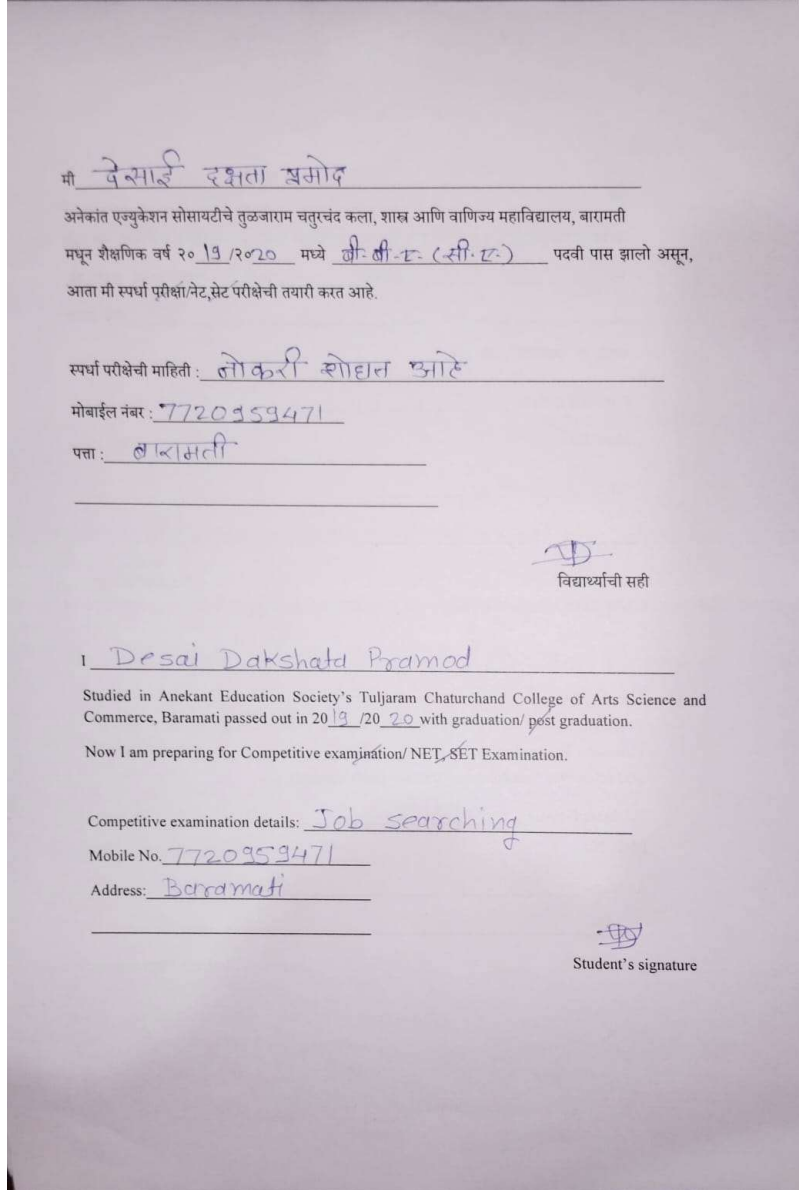 मी देसाई दक्षता प्रमोद
अनेकांत एज्युकेशन सोसायटीचे तुळजाराम चतुरचंद कला, शास्त्र आणि वाणिज्य महाविद्यालय, बारामती
मधून शैक्षणिक वर्ष २० 19 /२०20 मध्ये बी. बी. ए. (सी. ए.) पदवी पास झालो असून,
आता मी स्पर्धा परीक्षा/नेट,सेट परीक्षेची तयारी करत आहे.
स्पर्धा परीक्षेची माहिती : नोकरी शोधत आहे
मोबाईल नंबर : 7720959471
पत्ता : बारामती
विद्यार्थ्याची सही
I Desai Dakshata Pramod
Studied in Anekant Education Society's Tuljaram Chaturchand College of Arts Science and
Commerce, Baramati passed out in 20 19 /20 20 with graduation/ post graduation.
Now I am preparing for Competitive examination/ NET, SET Examination.
Competitive examination details: Job searching
Mobile No. 7720959471
Address: Baramati
Student's signature